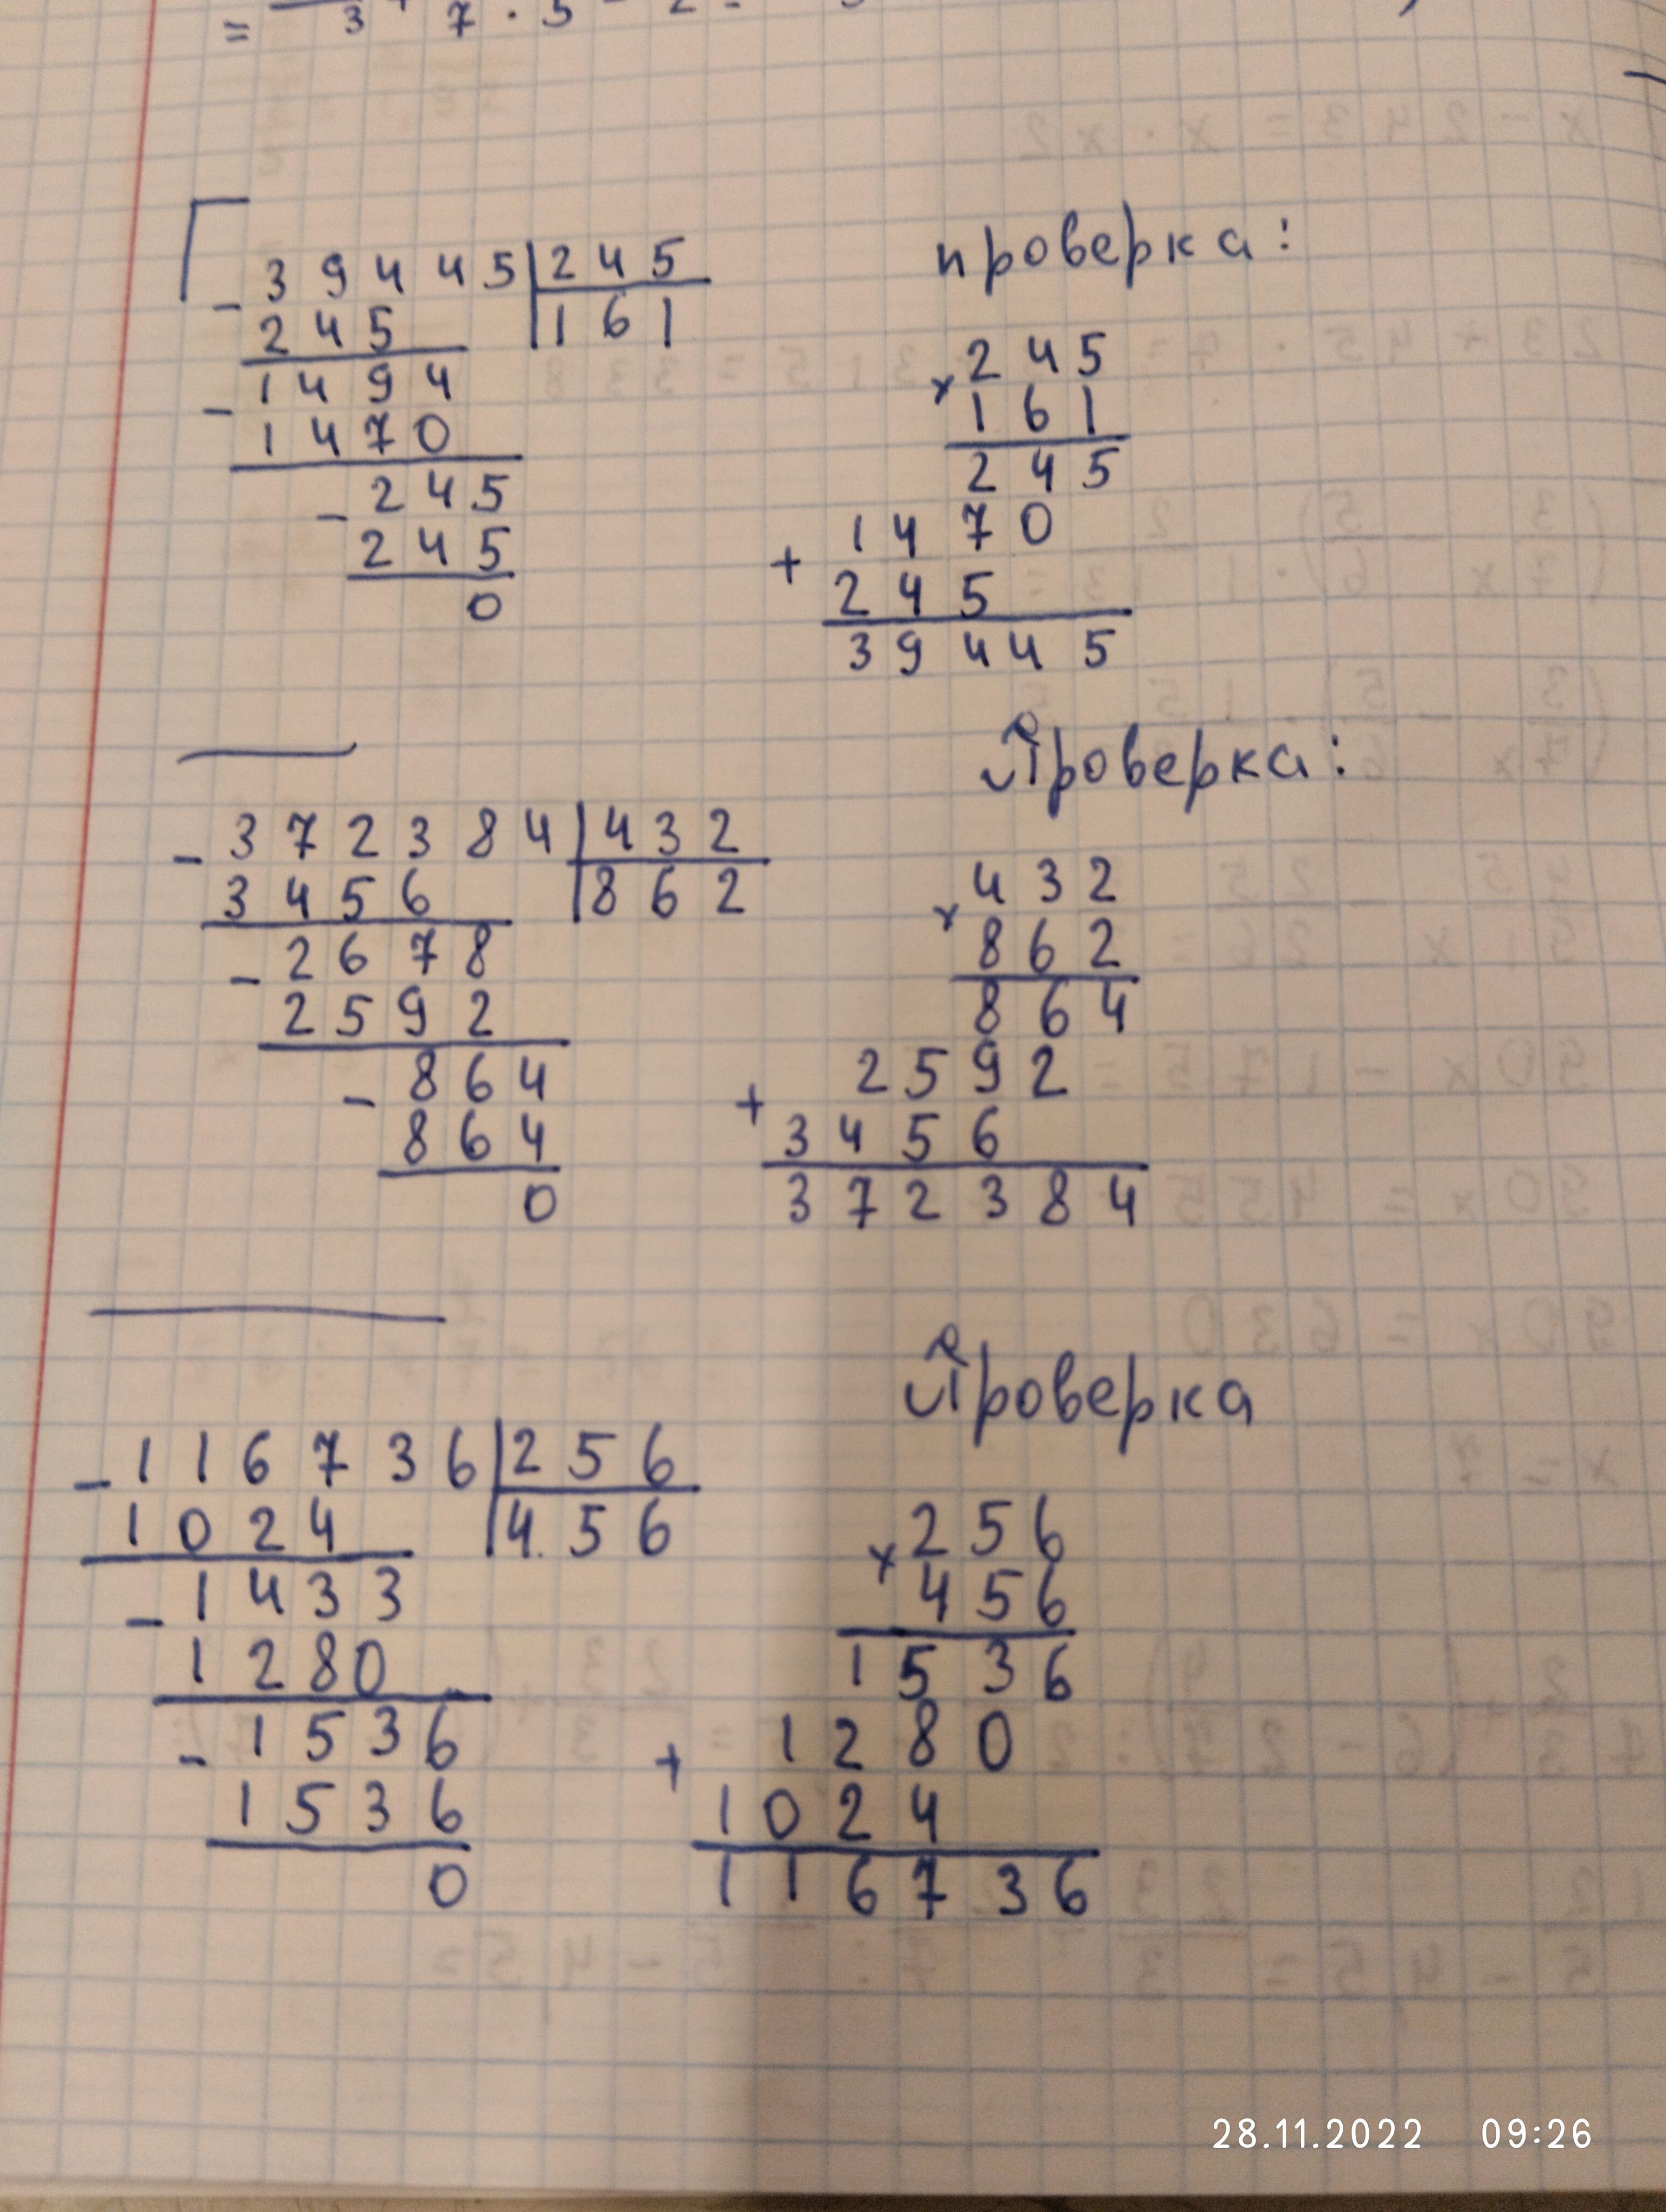 39445 | 245
245 | 161
1494
1470
245
245
0
проверка:
× 245
161
245
+ 1470
245
39445
- 372384 | 432
3456 | 862
- 2678
2592
- 864
864
0
Проверка:
× 432
862
864
+ 2592
3456
372384
- 116736 | 256
1024 | 456
- 1433
1280
- 1536
1536
0
Проверка
× 256
456
1536
+ 1280
1024
116736
28.11.2022 09:26